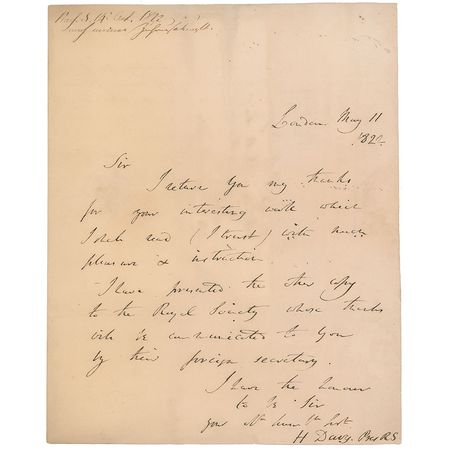 London May 11
182
Sir
I return You my thanks
for your interesting work which
I shall read (I trust) with much
pleasure & instruction
I have presented the other copy
to the Royal Society whose thanks
will be communicated to You
by their foreign secretary.
I have the honour
to be Sir
your
H Davy. Pres RS